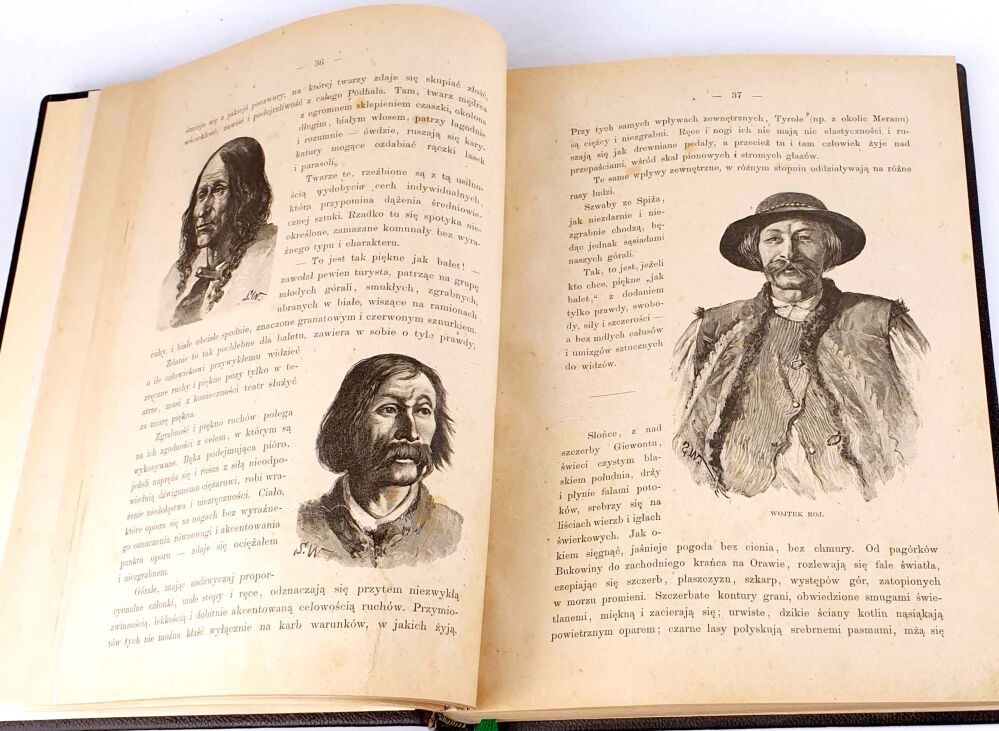 — 36 —
śmieje się z jakiejś poczwary, na której twarzy zdaje się skupiać złość,
wściekłość, zawiść i podejrzliwość z całego Podhala. Tam, twarz mędrca
z ogromnem sklepieniem czaszki, okolona
długim, białym włosem, patrzy łagodnie
i rozumnie — ówdzie, ruszają się kary-
katury mogące ozdabiać rączki lasek
i parasoli,
Twarze te, rzeźbione są z tą usilno-
ścią wydobycia cech indywidualnych,
która przypomina dążenia średniowie-
cznej sztuki. Rzadko tu się spotyka nie-
określone, zamazane komunały bez wyra-
źnego typu i charakteru.
— To jest tak piękne jak balet! —
zawołał pewien turysta, patrząc na grupę
młodych górali, smukłych, zgrabnych,
ubranych w białe, wiszące na ramionach
cuhy, i białe obcisłe spodnie, znaczone granatowym i czerwonym sznurkiem.
Zdanie to tak pochlebne dla baletu, zawiera w sobie o tyle prawdy,
o ile człowiekowi przywykłemu widzieć
zręczne ruchy i piękne pozy tylko w te-
atrze, musi z konieczności teatr służyć
za miarę piękna.
Zgrabność i piękno ruchów polega
na ich zgodności z celem, w którym są
wykonywane. Ręka podejmująca pióro,
jeżeli napręża się i rusza z siłą nieodpo-
wiednią dźwiganemu ciężarowi, robi wra-
żenie niedołęstwa i niezręczności. Ciało,
które opiera się na nogach bez wyraźne-
go oznaczenia równowagi i akcentowania
punktu oporu — zdaje się ociężałem
i niezgrabnem.
Górale, mając nadzwyczaj propor-
cyonalne członki, małe stopy i ręce, odznaczają się przytem niezwykłą
zwinnością, lekkością i dobitnie akcentowaną celowością ruchów. Przymio-
tów tych nie można kłaść wyłącznie na karb warunków, w jakich żyją.
S.W.
S.W.
— 37 —
Przy tych samych wpływach zewnętrznych, Tyrole (np. z okolic Meranu)
są ciężcy i niezgrabni. Ręce i nogi ich nie mają nic elastyczności i ru-
szają się jak drewniane pedały, a przecież tu i tam człowiek żyje nad
przepaściami, wśród skał pionowych i stromych głazów.
Te same wpływy zewnętrzne, w różnym stopniu oddziaływały na różne
rasy ludzi.
Szwaby ze Spiża,
jak niezdarnie i nie-
zgrabnie chodzą, bę-
dąc jednak sąsiadami
naszych górali.
Tak, to jest, jeżeli
kto chce, piękne „jak
balet,“ z dodaniem
tylko prawdy, swobo-
dy, siły i szczerości —
a bez mdłych całusów
i umizgów sztucznych
do widzów.
Słońce, z nad
szczerby Giewontu,
świeci czystym bla-
skiem południa, drży
i płynie falami poto-
ków, srebrzy się na
liściach wierzb i igłach
świerkowych. Jak o-
kiem sięgnąć, jaśnieje pogoda bez cienia, bez chmury. Od pagórków
Bukowiny do zachodniego krańca na Orawie, rozlewają się fale światła,
czepiając się szczerb, płaszczyzn, szkarp, występów gór, zatopionych
w morzu promieni. Szczerbate kontury grani, obwiedzione smugami świe-
tlanemi, miękną i zacierają się; urwiste, dzikie ściany kotlin nasiąkają
powietrznym oparem; czarne lasy połyskują srebrnemi pasmami, mżą się
WOJTEK ROJ.